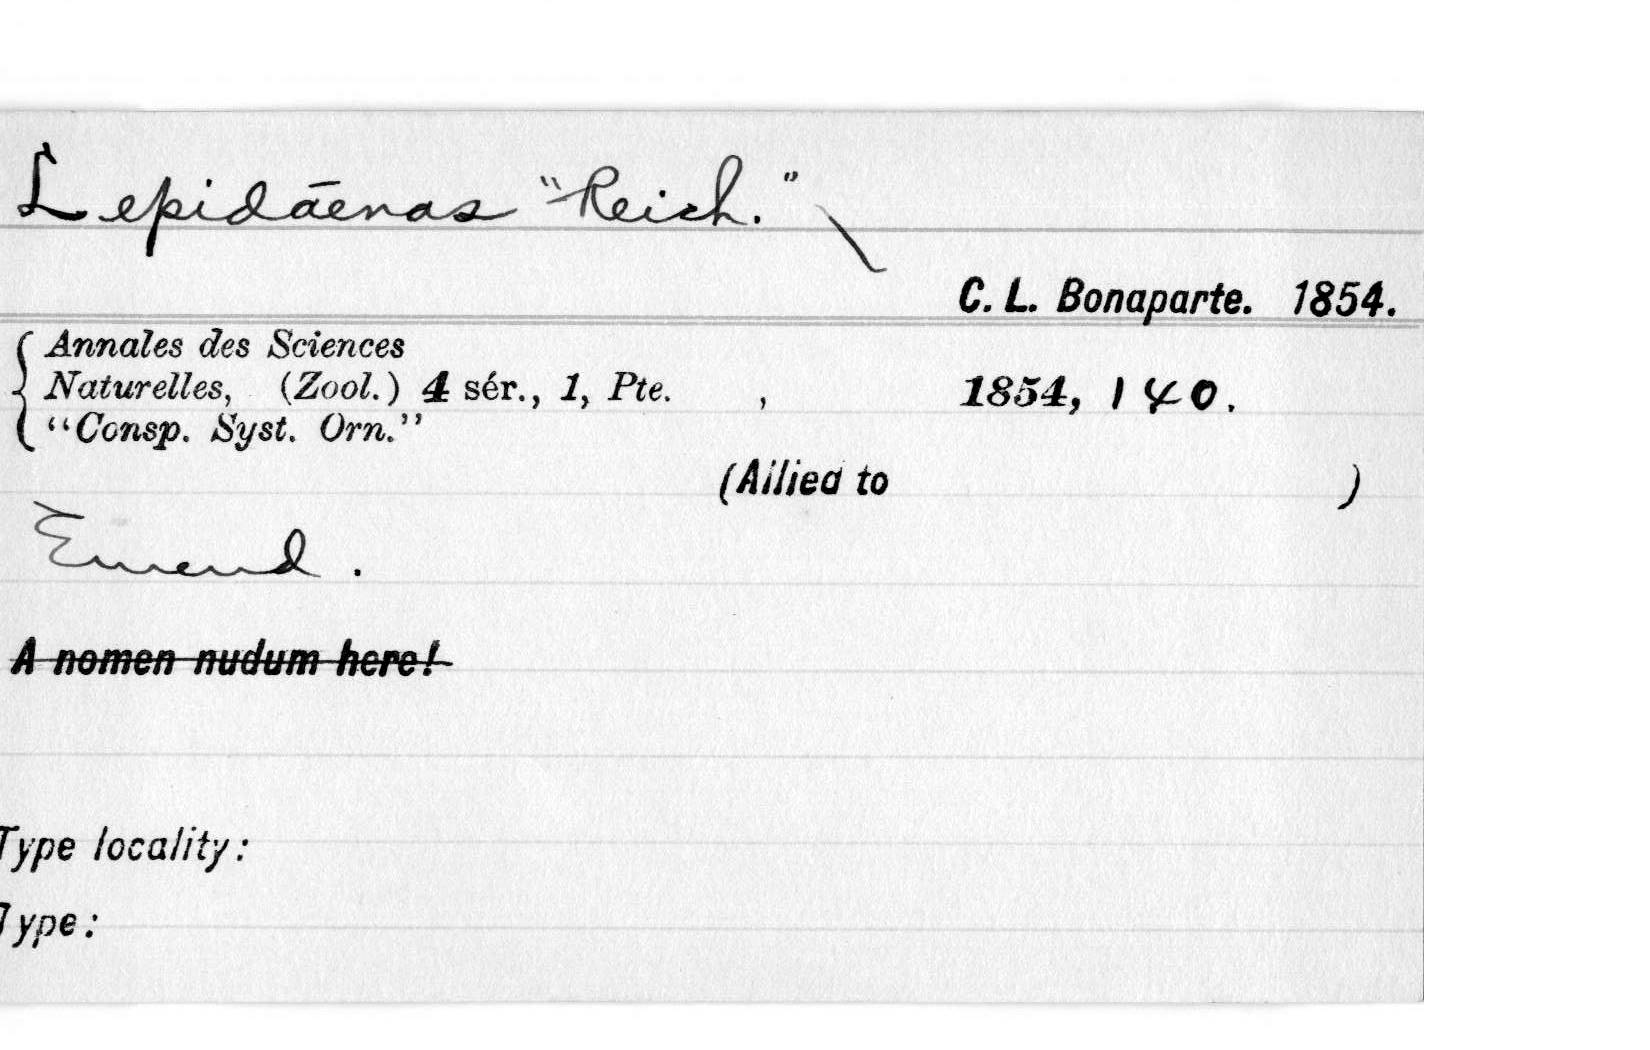 Lepidāenas "Reich."
C. L. Bonaparte. 1854.
Annales des Sciences
Naturelles, (Zool.) 4 sér., 1, Pte. , 1854, 140.
"Consp. Syst. Orn."
(Allied to )
Emend.
A nomen nudum here!
Type locality:
Type: